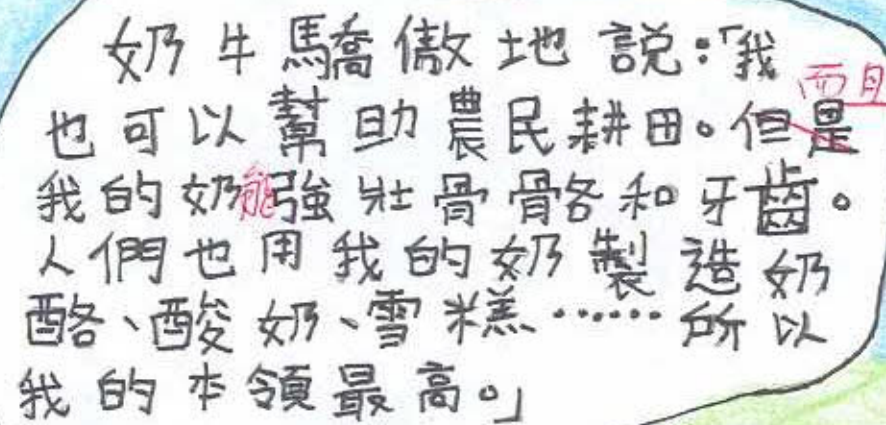 奶牛驕傲地說：「我
而且
也可以幫助農民耕田。但是
我的奶能強壯骨骼和牙齒。
人們也用我的奶製造奶
酪、酸奶、雪糕……所以
我的本領最高。」